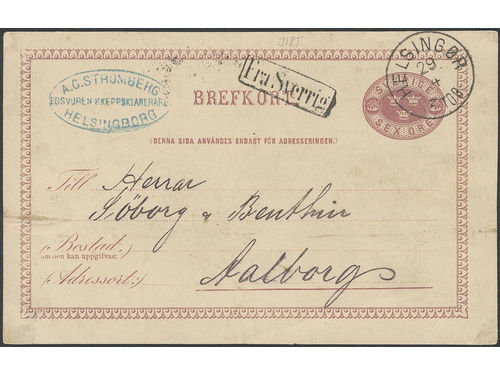 3185
A.C. STRÖMBERG
EDSVUREN SKEPPSKLARERARE
HELSINGBORG
Fra Sverrig
BREFKORT
HELSINGØR
29
4
SVERIGE
SEX ÖRE
(DENNA SIDA ANVÄNDES ENDAST FÖR ADRESSERINGEN.)
Till Herrar
Söborg & Benthin
(Bostad,)
om den kan uppgifvas:
(Adressort:) Aalborg